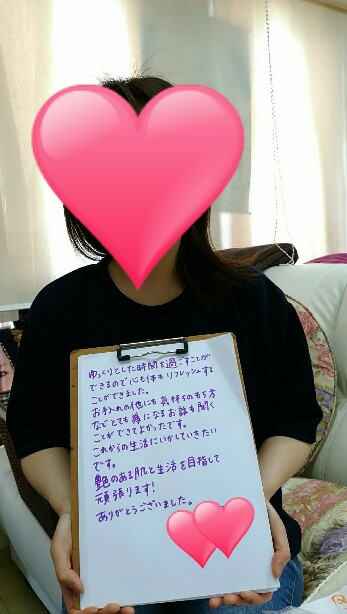 ゆっくりとした時間を過ごすことが
できるので心も体もリフレッシュする
ことができました。
お手入れの他にも気持ちのもち方
などとても為になるお話も聞く
ことができてよかったです。
これからの生活にいかしていきたい
です。
艶のある肌と生活を目指して
頑張ります!
ありがとうございました。